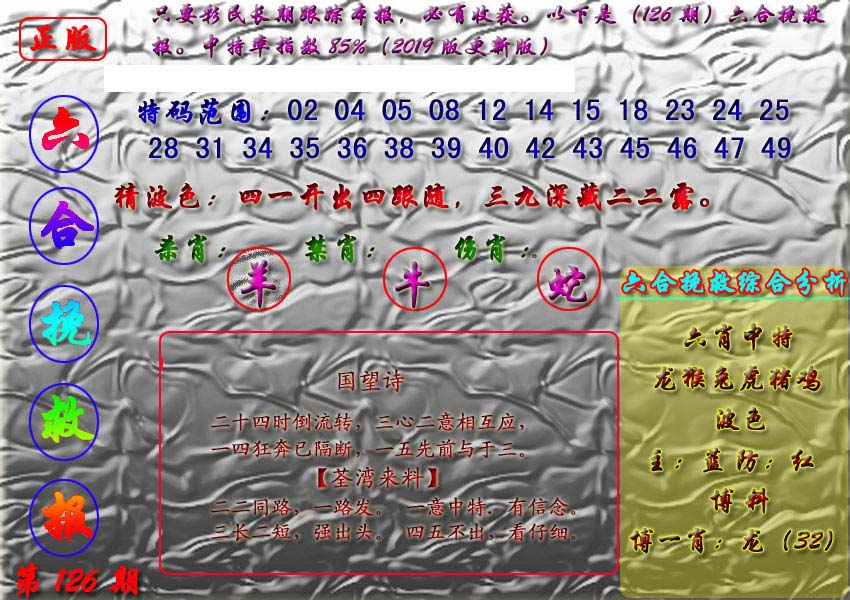 正版
只要彩民长期跟踪本报，必有收获。以下是（126期）六合挽救
报。中特率指数85%（2019版更新版）
六合挽救报
特码范围：02 04 05 08 12 14 15 18 23 24 25
28 31 34 35 36 38 39 40 42 43 45 46 47 49
猜波色：四一开出四跟随，三九深藏二二露。
杀肖：羊 禁肖：牛 伤肖：蛇。
国望诗
二十四时倒流转，三心二意相互应，
一四狂奔已隔断，一五先前与于三。
【荃湾来料】
二二同路，一路发。 一意中特，有信念。
三长二短，强出头。 四五不出，看仔细。
六合挽救综合分析
六肖中特
龙猴兔虎猪鸡
波色
主：蓝防：红
博料
博一肖：龙（32）
第126期